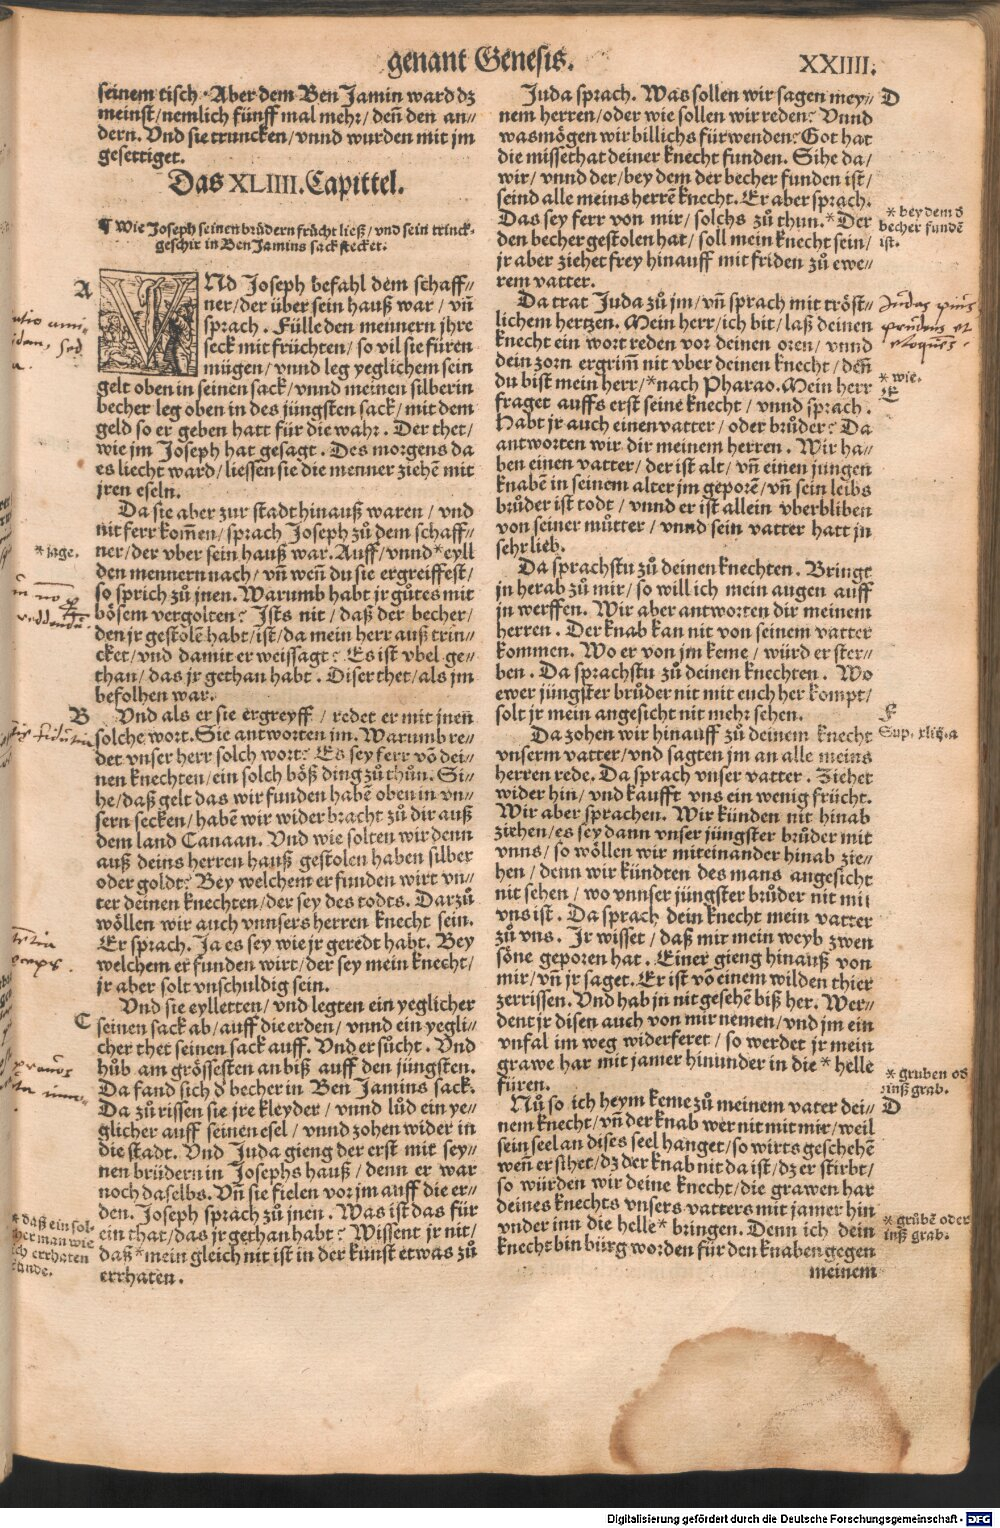 genant Genesis.
XXIIII.
seinem tisch. Aber dem Ben Jamin ward dz
meinst/nemlich fünff mal mehr/ deñ den an⸗
dern. Vnd sie truncken/vnnd wurden mit jm
gesettiget.
Das XLIIII. Capittel.
¶ Wie Joseph seinen brůdern frücht ließ/ vnd sein trinck⸗
geschir in Ben Jamins sack stecket.
A
VNd Joseph befahl dem schaff⸗
ner/der über sein hauß war/ vñ
sprach. Fülle den mennern jhre
seck mit früchten/so vil sie füren
mügen/ vnnd leg yeglichem sein
gelt oben in seinen sack/vnnd meinen silberin
becher leg oben in des jüngsten sack/mit dem
geld so er geben hatt für die wahr. Der thet/
wie jm Joseph hat gesagt. Des morgens da
es liecht ward/liessen sie die menner ziehẽ mit
jren eseln.
Da sie aber zur stadt hinauß waren/ vnd
nit ferr kom̃en/sprach Joseph zů dem schaff⸗
ner/der vber sein hauß war. Auff/vnnd*eyll
den mennern nach/ vñ weñ du sie ergreiffest/
so sprich zů jnen. Warumb habt jr gůtes mit
bösem vergolten? Ists nit/ daß der becher/
den jr gestolẽ habt/ist/da mein herr auß trin⸗
cket/vnd damit er weissagt? Es ist vbel ge⸗
than/das jr gethan habt. Diser thet/als jm
befolhen war.
* jage.
B
Vnd als er sie ergreyff/ redet er mit jnen
solche wort. Sie antworten jm. Warumb re⸗
det vnser herr solch wort? Es sey ferr võ dei⸗
nen knechten/ein solch böß ding zů thůn. Si⸗
he/daß gelt das wir funden habẽ oben in vn⸗
sern secken/habẽ wir wider bracht zů dir auß
dem land Canaan. Vnd wie solten wir denn
auß deins herren hauß gestolen haben silber
oder goldt? Bey welchem er funden wirt vn⸗
ter deinen knechten/der sey des todts. Darzů
wöllen wir auch vnnsers herren knecht sein.
Er sprach. Ja es sey wie jr geredt habt. Bey
welchem er funden wirt/der sey mein knecht/
jr aber solt vnschuldig sein.
Vnd sie eylletten/vnd legten ein yeglicher
C
seinen sack ab/auff die erden/ vnnd ein yegli⸗
cher thet seinen sack auff. Vnd er sůcht. Vnd
hůb am grössesten an biß auff den jüngsten.
Da fand sich d̓ becher in Ben Jamins sack.
Da zů rissen sie jre kleyder/ vnnd lůd ein ye⸗
glicher auff seinen esel/vnnd zohen wider in
die stadt. Vnd Juda gieng der erst mit sey⸗
nen brüdern in Josephs hauß/ denn er war
noch daselbs. Vñ sie fielen vor jm auff die er⸗
den. Joseph sprach zů jnen. Was ist das für
ein that/das jr gethan habt? Wissent jr nit/
daß*mein gleich nit ist in der kunst etwas zů
errhaten.
* daß ein sol⸗
cher man wie
ich errhaten
künde.
Juda sprach. Was sollen wir sagen mey⸗
nem herren/oder wie sollen wir reden? Vnnd
was mögen wir billichs fürwenden? Got hat
die missethat deiner knecht funden. Sihe da/
wir/vnnd der/bey dem der becher funden ist/
seind alle meins herrẽ knecht. Er aber sprach.
Das sey ferr von mir/solchs zů thun. *Der
den becher gestolen hat/ soll mein knecht sein/
jr aber ziehet frey hinauff mit friden zů ewe⸗
rem vatter.
D
* bey dem d̓
becher fundẽ
ist.
Da trat Juda zů jm/vñ sprach mit tröst⸗
lichem hertzen. Mein herr/ich bit/ laß deinen
knecht ein wort reden vor deinen oren/ vnnd
dein zorn ergrim̃ nit vber deinen knecht/ deñ
du bist mein herr/*nach Pharao. Mein herr
fraget auffs erst seine knecht/ vnnd sprach.
Habt jr auch einen vatter/oder brůder? Da
antworten wir dir meinem herren. Wir ha⸗
ben einen vatter/der ist alt/ vñ einen jungen
knabẽ in seinem alter jm geporẽ/vñ sein leibs
brůder ist todt/vnnd er ist allein vberbliben
von seiner můtter/ vnnd sein vatter hatt jn
sehr lieb.
* wie.
E
Da sprachstu zů deinen knechten. Bringt
jn herab zů mir/so will ich mein augen auff
jn werffen. Wir aber antworten dir meinem
herren. Der knab kan nit von seinem vatter
kommen. Wo er von jm keme/ würd er ster⸗
ben. Da sprachstu zů deinen knechten. Wo
ewer jüngster brůder nit mit euch her kompt/
solt jr mein angesicht nit mehr sehen.
F
Da zohen wir hinauff zů deinem knecht
vnserm vatter/vnd sagten jm an alle meins
herren rede. Da sprach vnser vatter. Ziehet
wider hin/vnd kaufft vns ein wenig frücht.
Wir aber sprachen. Wir künden nit hinab
ziehen/es sey dann vnser jüngster brůder mit
vnns/ so wöllen wir miteinander hinab zie⸗
hen/ denn wir kündten des mans angesicht
nit sehen/ wo vnnser jüngster brůder nit mit
vns ist. Da sprach dein knecht mein vatter
zů vns. Jr wisset/ daß mir mein weyb zwen
söne geporen hat. Einer gieng hinauß von
mir/vñ jr saget. Er ist võ einem wilden thier
zerrissen. Vnd hab jn nit gesehẽ biß her. Wer⸗
dent jr disen auch von mir nemen/vnd jm ein
vnfal im weg widerferet/ so werdet jr mein
grawe har mit jamer hinunder in die*helle
füren.
Sup. xliij. a
* gruben od̓
inß grab.
D
Nů so ich heym keme zů meinem vater dei⸗
nem knecht/vñ der knab wer nit mit mir/weil
sein seel an dises seel hanget/so wirts geschehẽ
weñ er sihet/dz der knab nit da ist/dz er stirbt/
so würden wir deine knecht/die grawen har
deines knechts vnsers vatters mit jamer hin
vnder inn die helle* bringen. Denn ich dein
knecht bin bürg worden für den knaben gegen
meinem
* grůbẽ oder
inß grab.
Digitalisierung gefördert durch die Deutsche Forschungsgemeinschaft - DFG